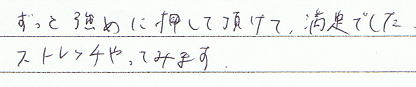 ずっと強めに押して頂けて、満足でした
ストレッチやってみます.